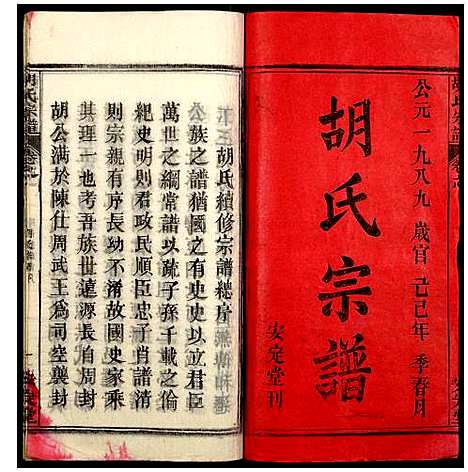 公元一九八九歲官己巳年季春月
胡氏宗譜
安定堂刊
胡氏續修宗譜總序
公族之譜猶國之有史史以立君臣
萬世之綱常譜以疏子孫千載之倫
紀史明則君政民順臣忠子肖譜清
則宗親有序長幼不淆故國史家乘
其理一也考吾族世遠源長自周封
胡公滿於陳仕周武王為司空襲封
胡氏宗譜